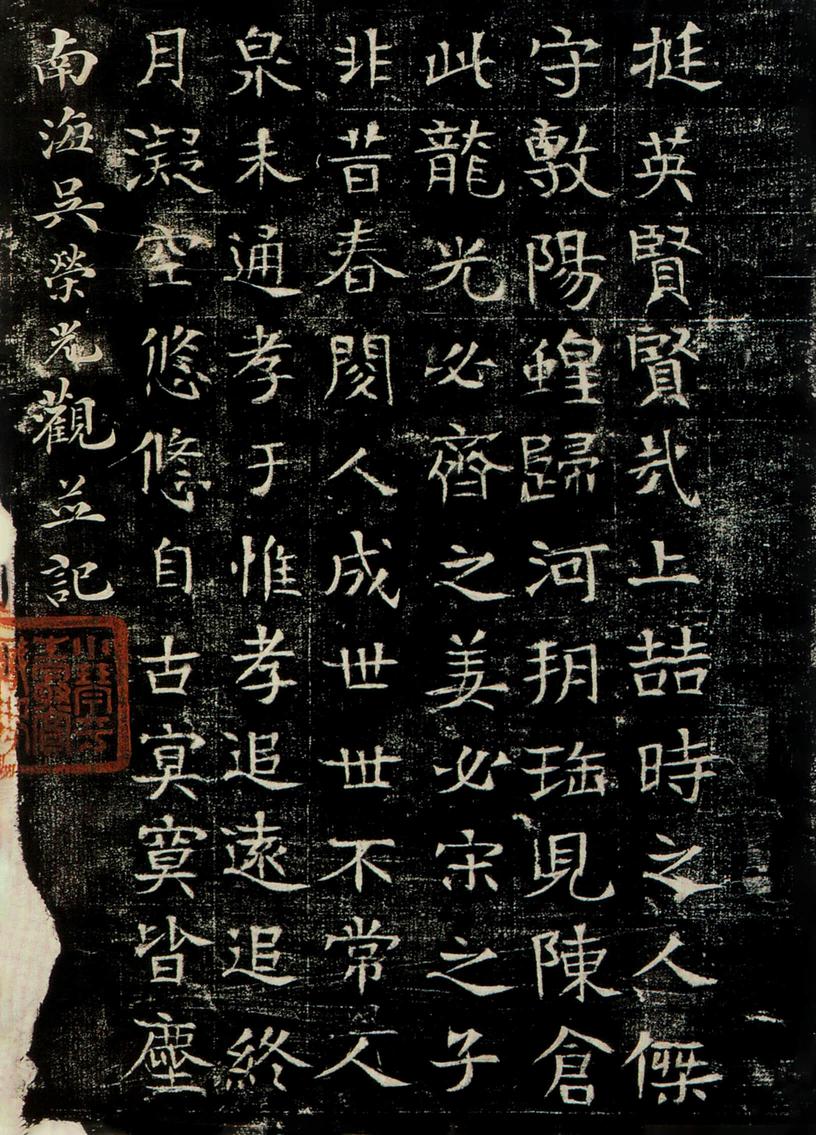 挺英賢賢哉上喆時之人傑
守敷陽蝗歸河玥珤見陳倉
此龍光必齊之姜必宋之子
非昔春閱人成世世不常人
泉未通孝于惟孝追遠追終
月凝空悠悠自古冥冥皆塵
南海吳榮光觀並記